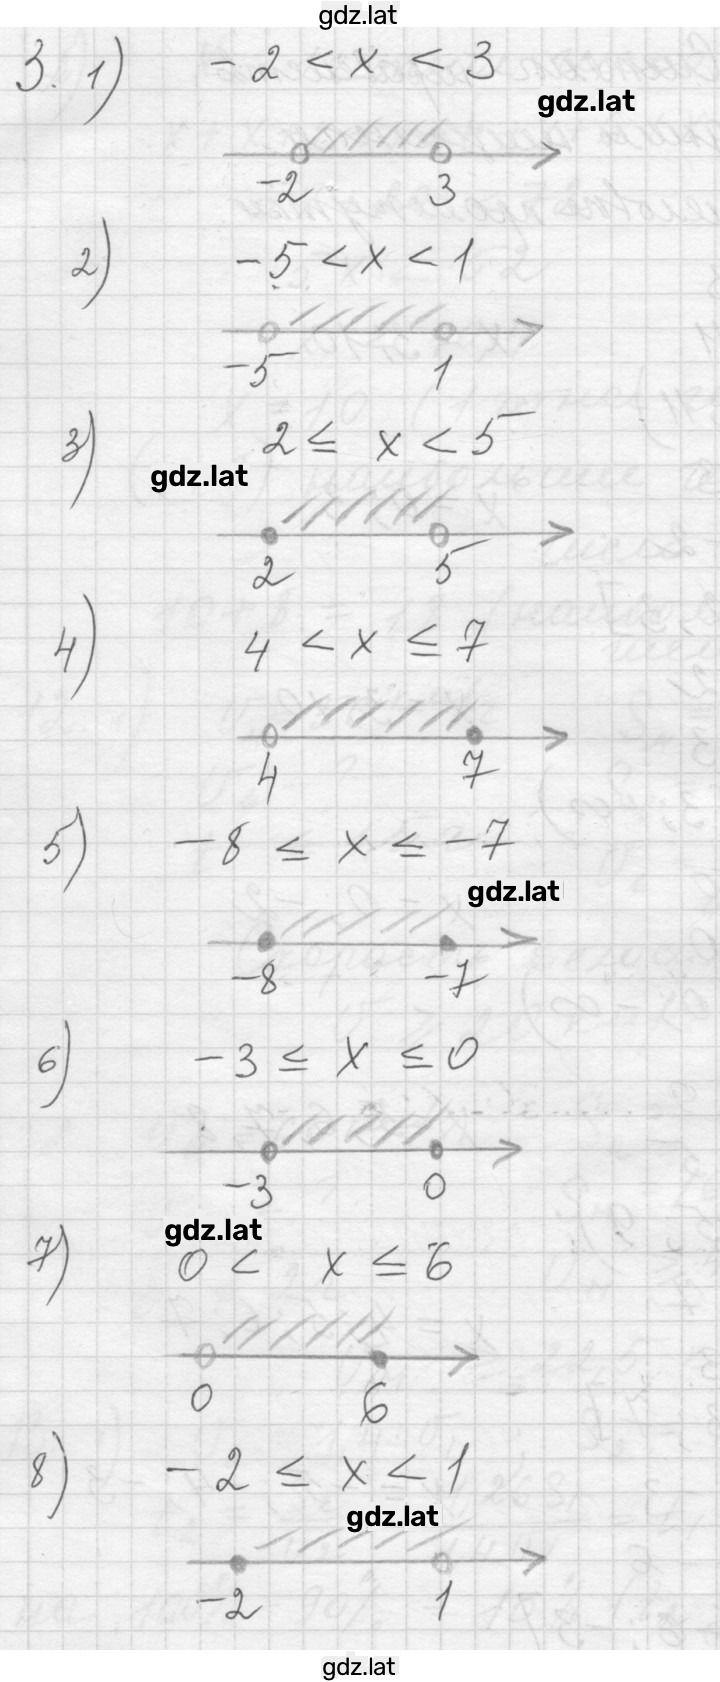 gdz.lat
3. 1) -2 < x < 3
gdz.lat
-2 3
2) -5 < x < 1
-5 1
3) 2 ≤ x < 5
gdz.lat
2 5
4) 4 < x ≤ 7
4 7
5) -8 ≤ x ≤ -7
gdz.lat
-8 -7
6) -3 ≤ x ≤ 0
-3 0
gdz.lat
7) 0 < x ≤ 6
0 6
8) -2 ≤ x < 1
gdz.lat
-2 1
gdz.lat